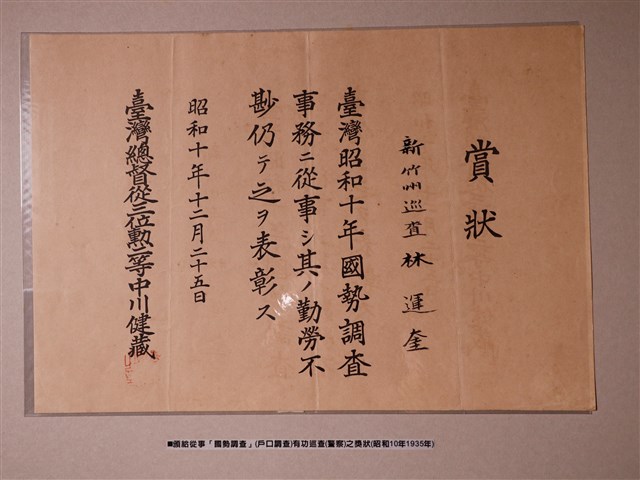 賞狀
新竹州巡查 林運奎
臺灣昭和十年國勢調査
事務ニ從事シ其ノ勤勞不
尠仍テ之ヲ表彰ス
昭和十年十二月二十五日
臺灣總督從三位勲一等中川健藏
■頒給從事「國勢調查」(戶口調查)有功巡查(警察)之獎狀(昭和10年1935年)